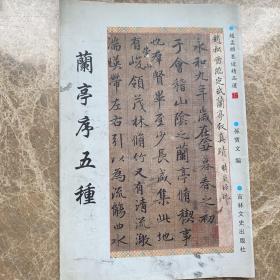 ●趙孟頫墨迹精品選
●孫寶文 編
●吉林文史出版社
趙松雪臨定武蘭亭叙真蹟
永和九年歲在癸丑暮春之初
于會稽山陰之蘭亭脩稧事
也羣賢畢至少長咸集此地
有崇山峻領茂林脩竹又有清流激
湍暎帶左右引以為流觴曲水
蘭亭序五種